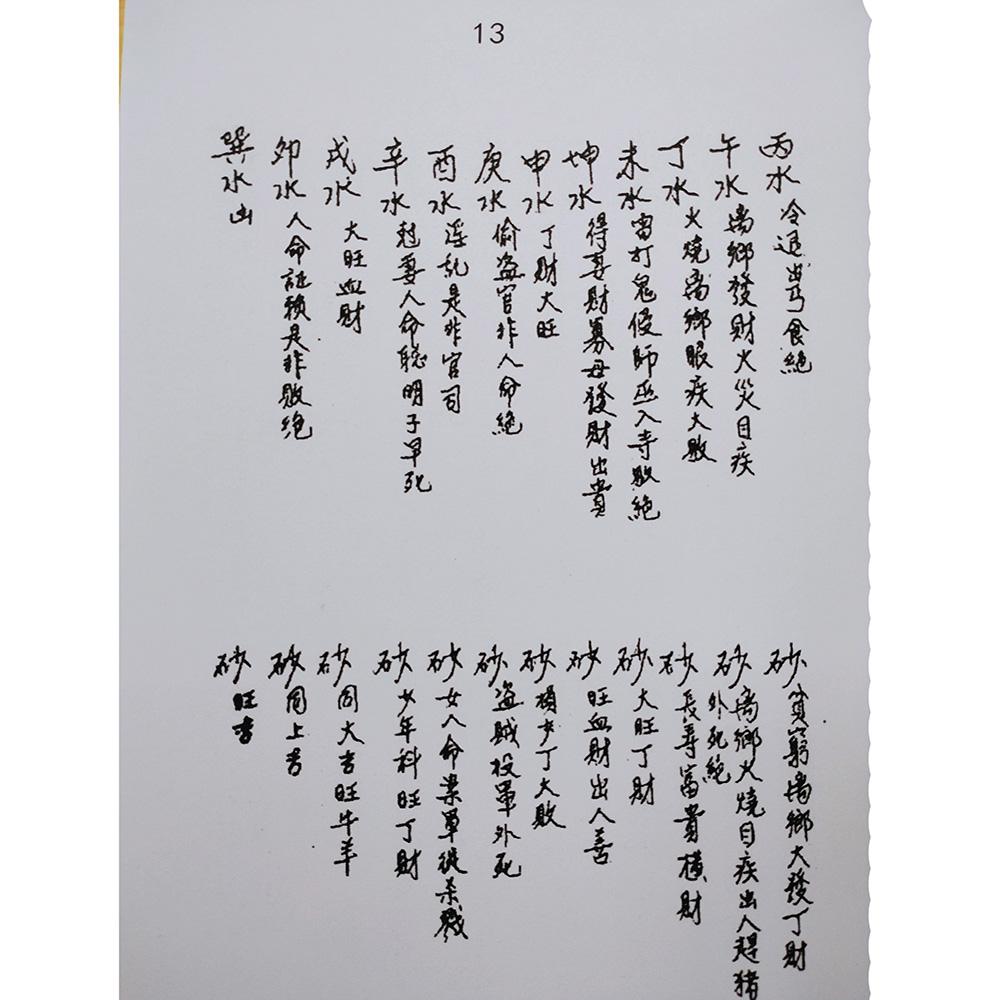 13
丙水冷退出丐食絕
午水离鄉發財火災目疾
丁水火燒离鄉眼疾大敗
未水雷打鬼侵師巫入寺敗絕
坤水得妻財寡母發財出貴
申水丁財大旺
庚水偷盗官非人命絕
酉水淫乱是非官司
辛水尅妻人命聪明子早死
戌水大旺血財
卯水人命証賴是非敗绝
巽水凶
砂貧窮离鄉大發丁財
砂离鄉火燒目疾出人趕猪
外死絕
砂長壽富貴橫財
砂大旺丁財
砂旺血財出人善
砂損少丁大敗
砂盗賊投軍外死
砂女人命案軍從杀戮
砂少年科旺丁財
砂同大吉旺牛羊
砂同上吉
砂旺吉